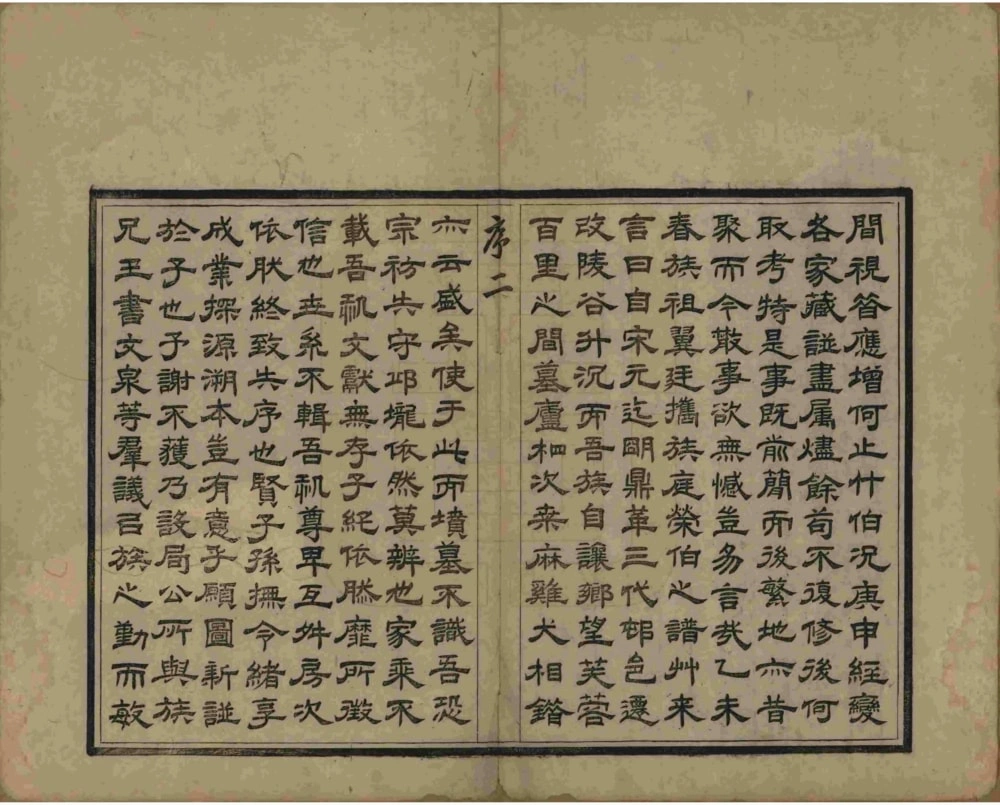 間視昝應增何止什伯況庚申經變
各家藏諡盡属燼餘苟不復修後何
取考特是事既歬蕳而後繁地亦昔
聚而今散事欲無憾豈易言哉乙未
春族祖翼廷攜族庭榮伯之譜艸来
言曰自宋元迄朙鼎革三代邨邑遷
改陵谷升沉而吾族自讓鄉望芙蓉
百里之間墓廬栉次桒麻雞犬相錯
序二
亦云盛矣使于此而墳墓不識吾恐
宗祊共守邱壠依然莫辨也家乘不
載吾祖文獻無存孑絕依然靡所徵
信也世系不輯吾祖尊卑互舛房次
依肰終致失序也賢子孫撫今緒享
成業探源溯本豈有意乎願圖新諡
於予也予謝不獲乃設局公所與族
兄玉書文泉等羣議㠯族之勤而敏